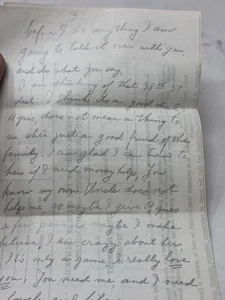 3
before I do anything I am
going to talk it over with you,
and do what you say.
I am thinking of that 38th St
deal. I think it's a good deal.
Agnes, does not mean a thing to
me she's just a good friend of the
family. I am glad I can turn to
her if I need money help, You
know my own Uncle does not
help me so maybe I give Agnes
a few pennies, maybe I make
believe, I am crazy about her,
It's only a game, I really love
you, You need me and I need